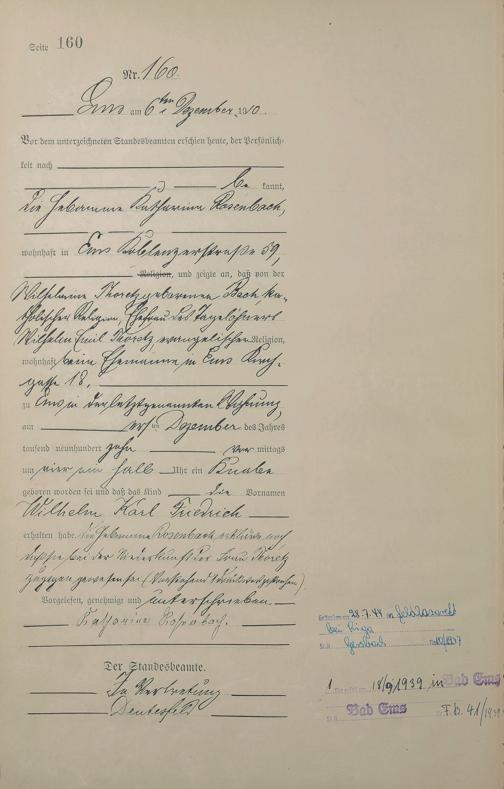 Seite 160
Nr. 160.
Ems am 6ten Dezember 1910.
Vor dem unterzeichneten Standesbeamten erschien heute, der Persönlich-
keit nach
be kannt,
die Hebamme Katharina Rosenbach,
wohnhaft in Ems Koblenzerstraße 59,
Religion, und zeigte an, daß von der
Wilhelmine Thoretz geborenen Bach, ka-
tholischer Religion, Ehefrau des Tagelöhners
Wilhelm Emil Thoretz, evangelischer Religion,
wohnhaft beim Ehemanne in Ems Kirch-
gasse 18,
zu Ems in der letztgenannten Wohnung,
am ersten Dezember des Jahres
tausend neunhundert zehn vor mittags
um vier ein halb Uhr ein Knabe
geboren worden sei und daß das Kind die Vornamen
Wilhelm Karl Friedrich
erhalten habe. Die Hebamme Rosenbach erklärte, noch
daß sie bei der Niederkunft der Frau Thoretz
zugegen gewesen sei. (Vorstehend
Vorgelesen, genehmigt und unterschrieben
Katharina Rosenbach.
Der Standesbeamte.
In Vertretung
28.7.44 in Feldlazarett
bei Riga
1. 18/9 1939 in Bad Ems
Bad Ems F.b. 41/1939